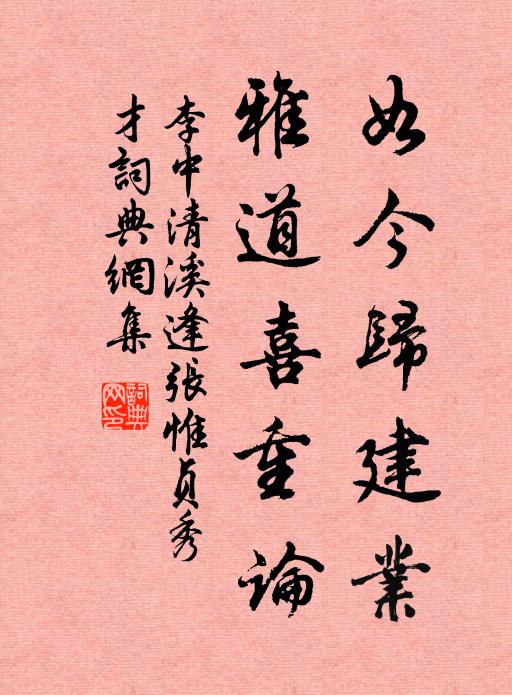 如今歸建業
雅道喜重論
李中清溪逢張惟貞秀
才詞典網集
詞典
网印